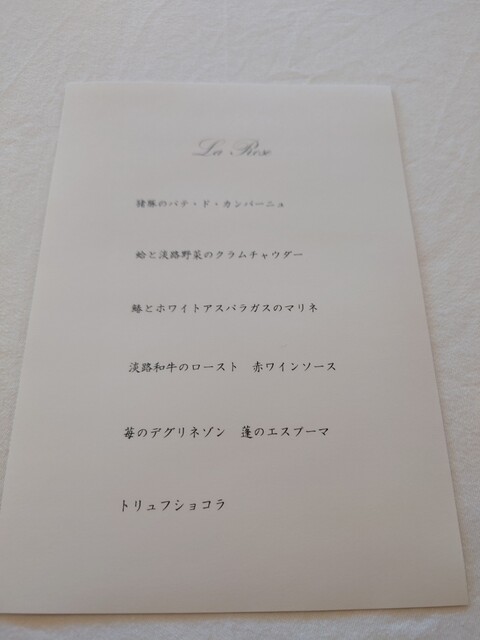 La Rose
猪豚のパテ・ド・カンパーニュ
蛤と淡路野菜のクラムチャウダー
鰆とホワイトアスパラガスのマリネ
淡路和牛のロースト　赤ワインソース
苺のデグリネゾン　蓬のエスプーマ
トリュフショコラ